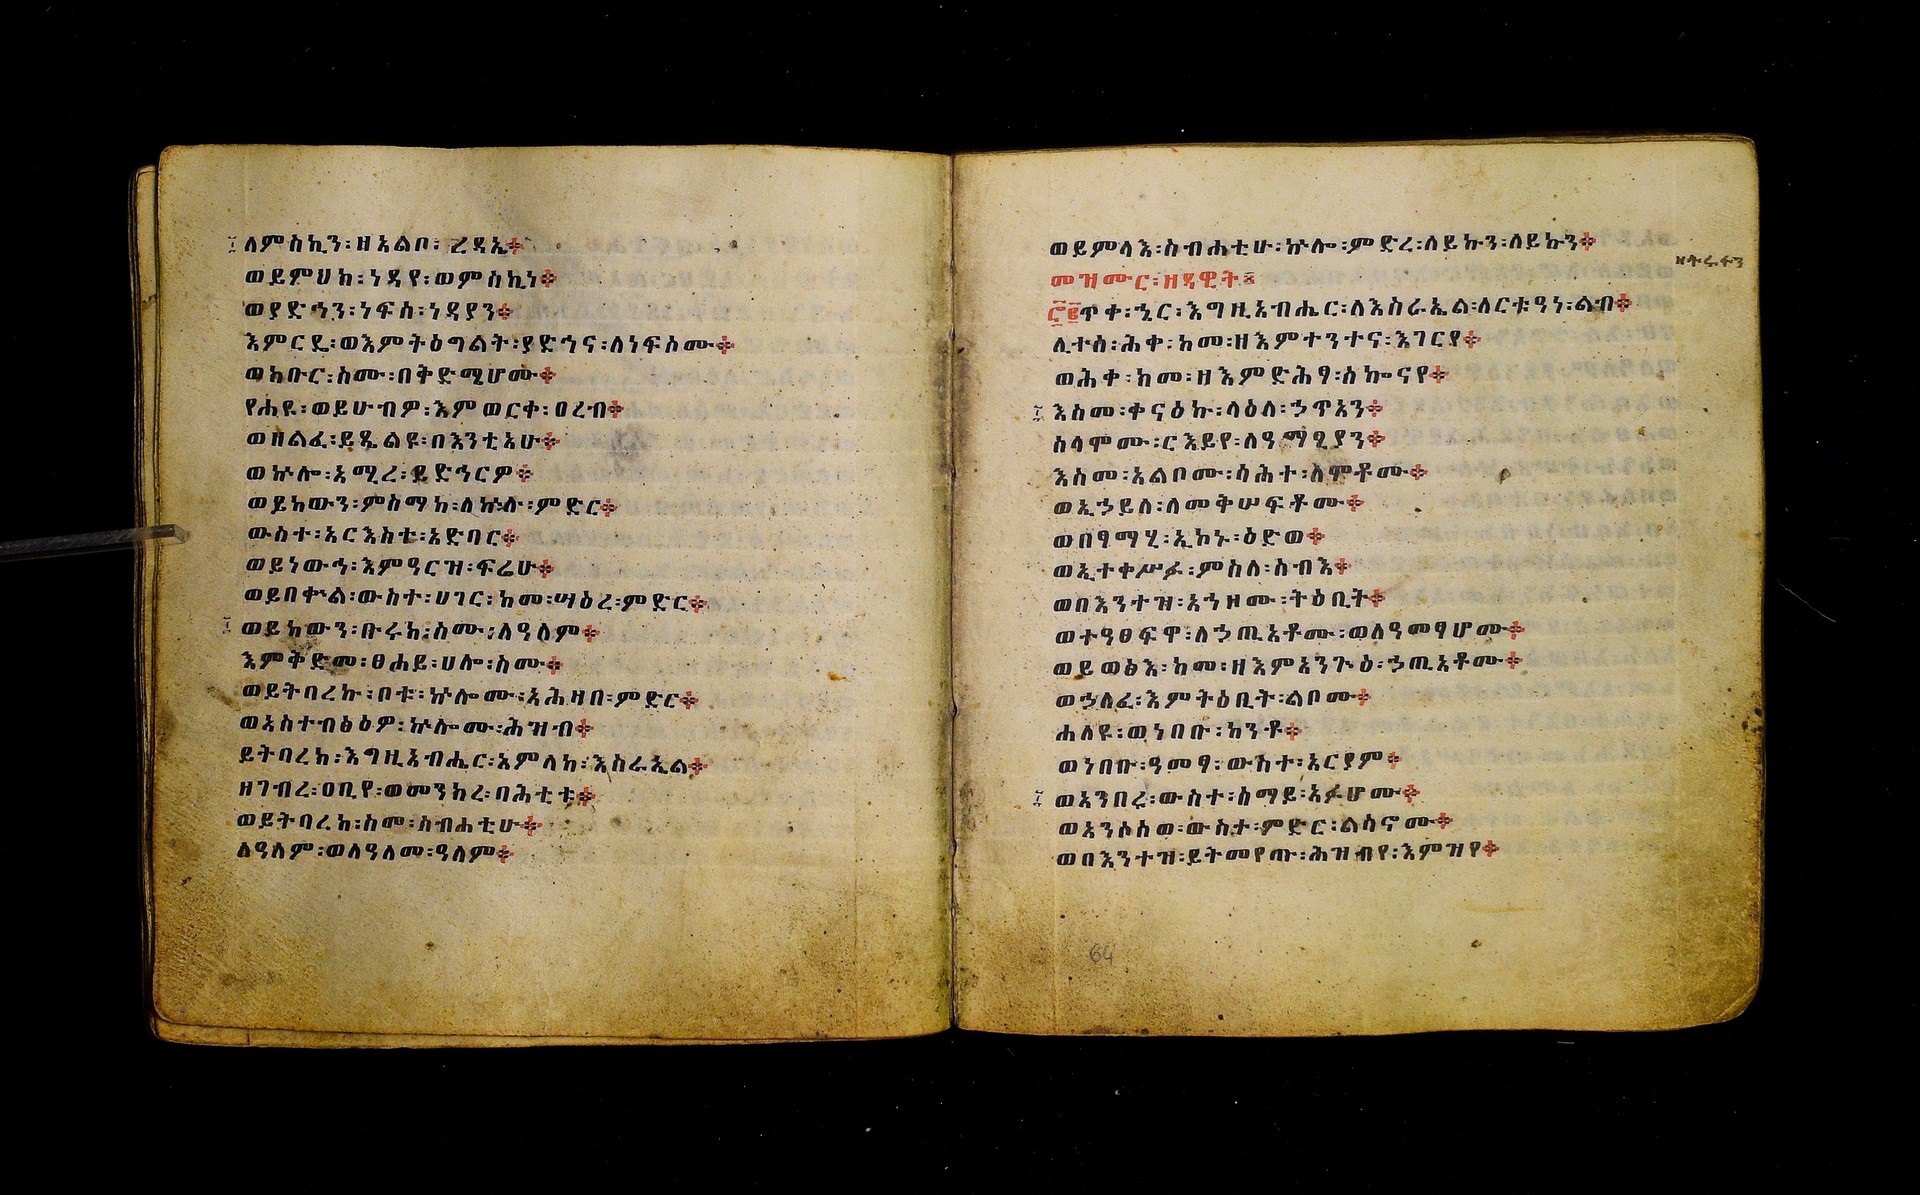 ለምስኪን፡ዘአልቦ፡ረዳኢ፨
ወይምህክ፡ነዳየ፡ወምስኪነ፨
ወያድኅን፡ነፍስ፡ነዳያን፨
እምርዴ፡ወእምትዕግልት፡ያድኅና፡ለነፍሶሙ፨
ወክቡር፡ስሙ፡በቅድሜሆሙ፨
የሐዩ፡ወይሁብዎ፡እምወርቀ፡ዐረብ፨
ወዘልፈ፡ይጼልዩ፡በእንቲአሁ፨
ወኵሎ፡አሚረ፡ይድኅርዎ፨
ወይከውን፡ምስማክ፡ለኵሉ፡ምድር፨
ውስተ፡አርእስቴ፡አድባር፨
ወይነውኅ፡እምዓርዝ፡ፍሬሁ፨
ወይበቍል፡ውስተ፡ሀገር፡ከመ፡ሣዕረ፡ምድር፨
ወይከውን፡ቡሩክ፡ስሙ፡ለዓለም፨
እምቅድመ፡ፀሐይ፡ሀሎ፡ስሙ፨
ወይትባረኩ፡በቱ፡ኵሎሙ፡አሕዛበ፡ምድር፨
ወአስተብፅዕዎ፡ኵሎሙ፡ሕዝብ፨
ይትባረክ፡እግዚአብሔር፡አምላከ፡እስራኤል፨
ዘገብረ፡ዐቢየ፡ወመንክረ፡ባሕቲቱ፨
ወይትባረክ፡ስመ፡ስብሐቲሁ፨
ለዓለም፡ወለዓለመ፡ዓለም፨
ወይምላእ፡ስብሐቲሁ፡ኵሎ፡ምድረ፡ለይኩን፡ለይኩን፨
መዝሙር፡ዘዳዊት፡
፸፪ጥቀ፡ኄር፡እግዚአብሔር፡ለእስራኤል፡ለርቱዓነ፡ልብ፨
ሊተሰ፡ሕቀ፡ከመ፡ዘእምተንተና፡እገርየ፨
ወሕቀ፡ከመ፡ዘእምድሕፃ፡ሰኰናየ፨
እስመ፡ቀናዕኩ፡ላዕለ፡ኃጥአን፨
ሰላሞሙ፡ርእይየ፡ለዓማፂያን፨
እስመ፡አልቦሙ፡ሣሕተ፡ለሞቶሙ፨
ወኢኃይለ፡ለመቅሠፍቶሙ፨
ወበፃማሂ፡ኢኮኑ፡ዕድወ፨
ወኢተቀሥፉ፡ምስለ፡ሰብእ፨
ወበእንተዝ፡አኀዘሙ፡ትዕቢት፨
ወተዓፀፍዋ፡ለኃጢአቶሙ፡ወለዓመፃሆሙ፨
ወይወፅእ፡ከመ፡ዘእምአንጕዕ፡ኃጢአቶሙ፨
ወኃለፈ፡እምትዕቢት፡ልቦሙ፨
ሐለዩ፡ወነበቡ፡ከንቶ፨
ወነበቡ፡ዓመፃ፡ውስተ፡አርያም፨
ወአንበሩ፡ውስተ፡ሰማይ፡አፉሆሙ፨
ወአንሶሰወ፡ውስተ፡ምድር፡ልሳኖሙ፨
ወበእንተዝ፡ይትመየጡ፡ሕዝብየ፡እምዝየ፨
64